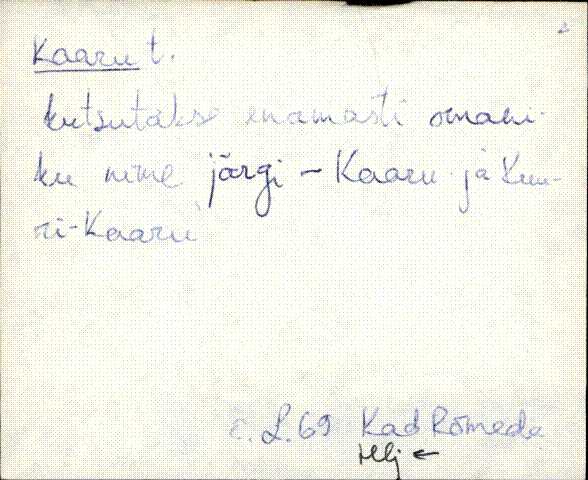 Kaaru t.
kutsutakse enamasti omani-
ku nime järgi – Kaaru ja Kuu-
ri-Kaaru
E. L. 69 Kad Rõmeda
Hlj ←